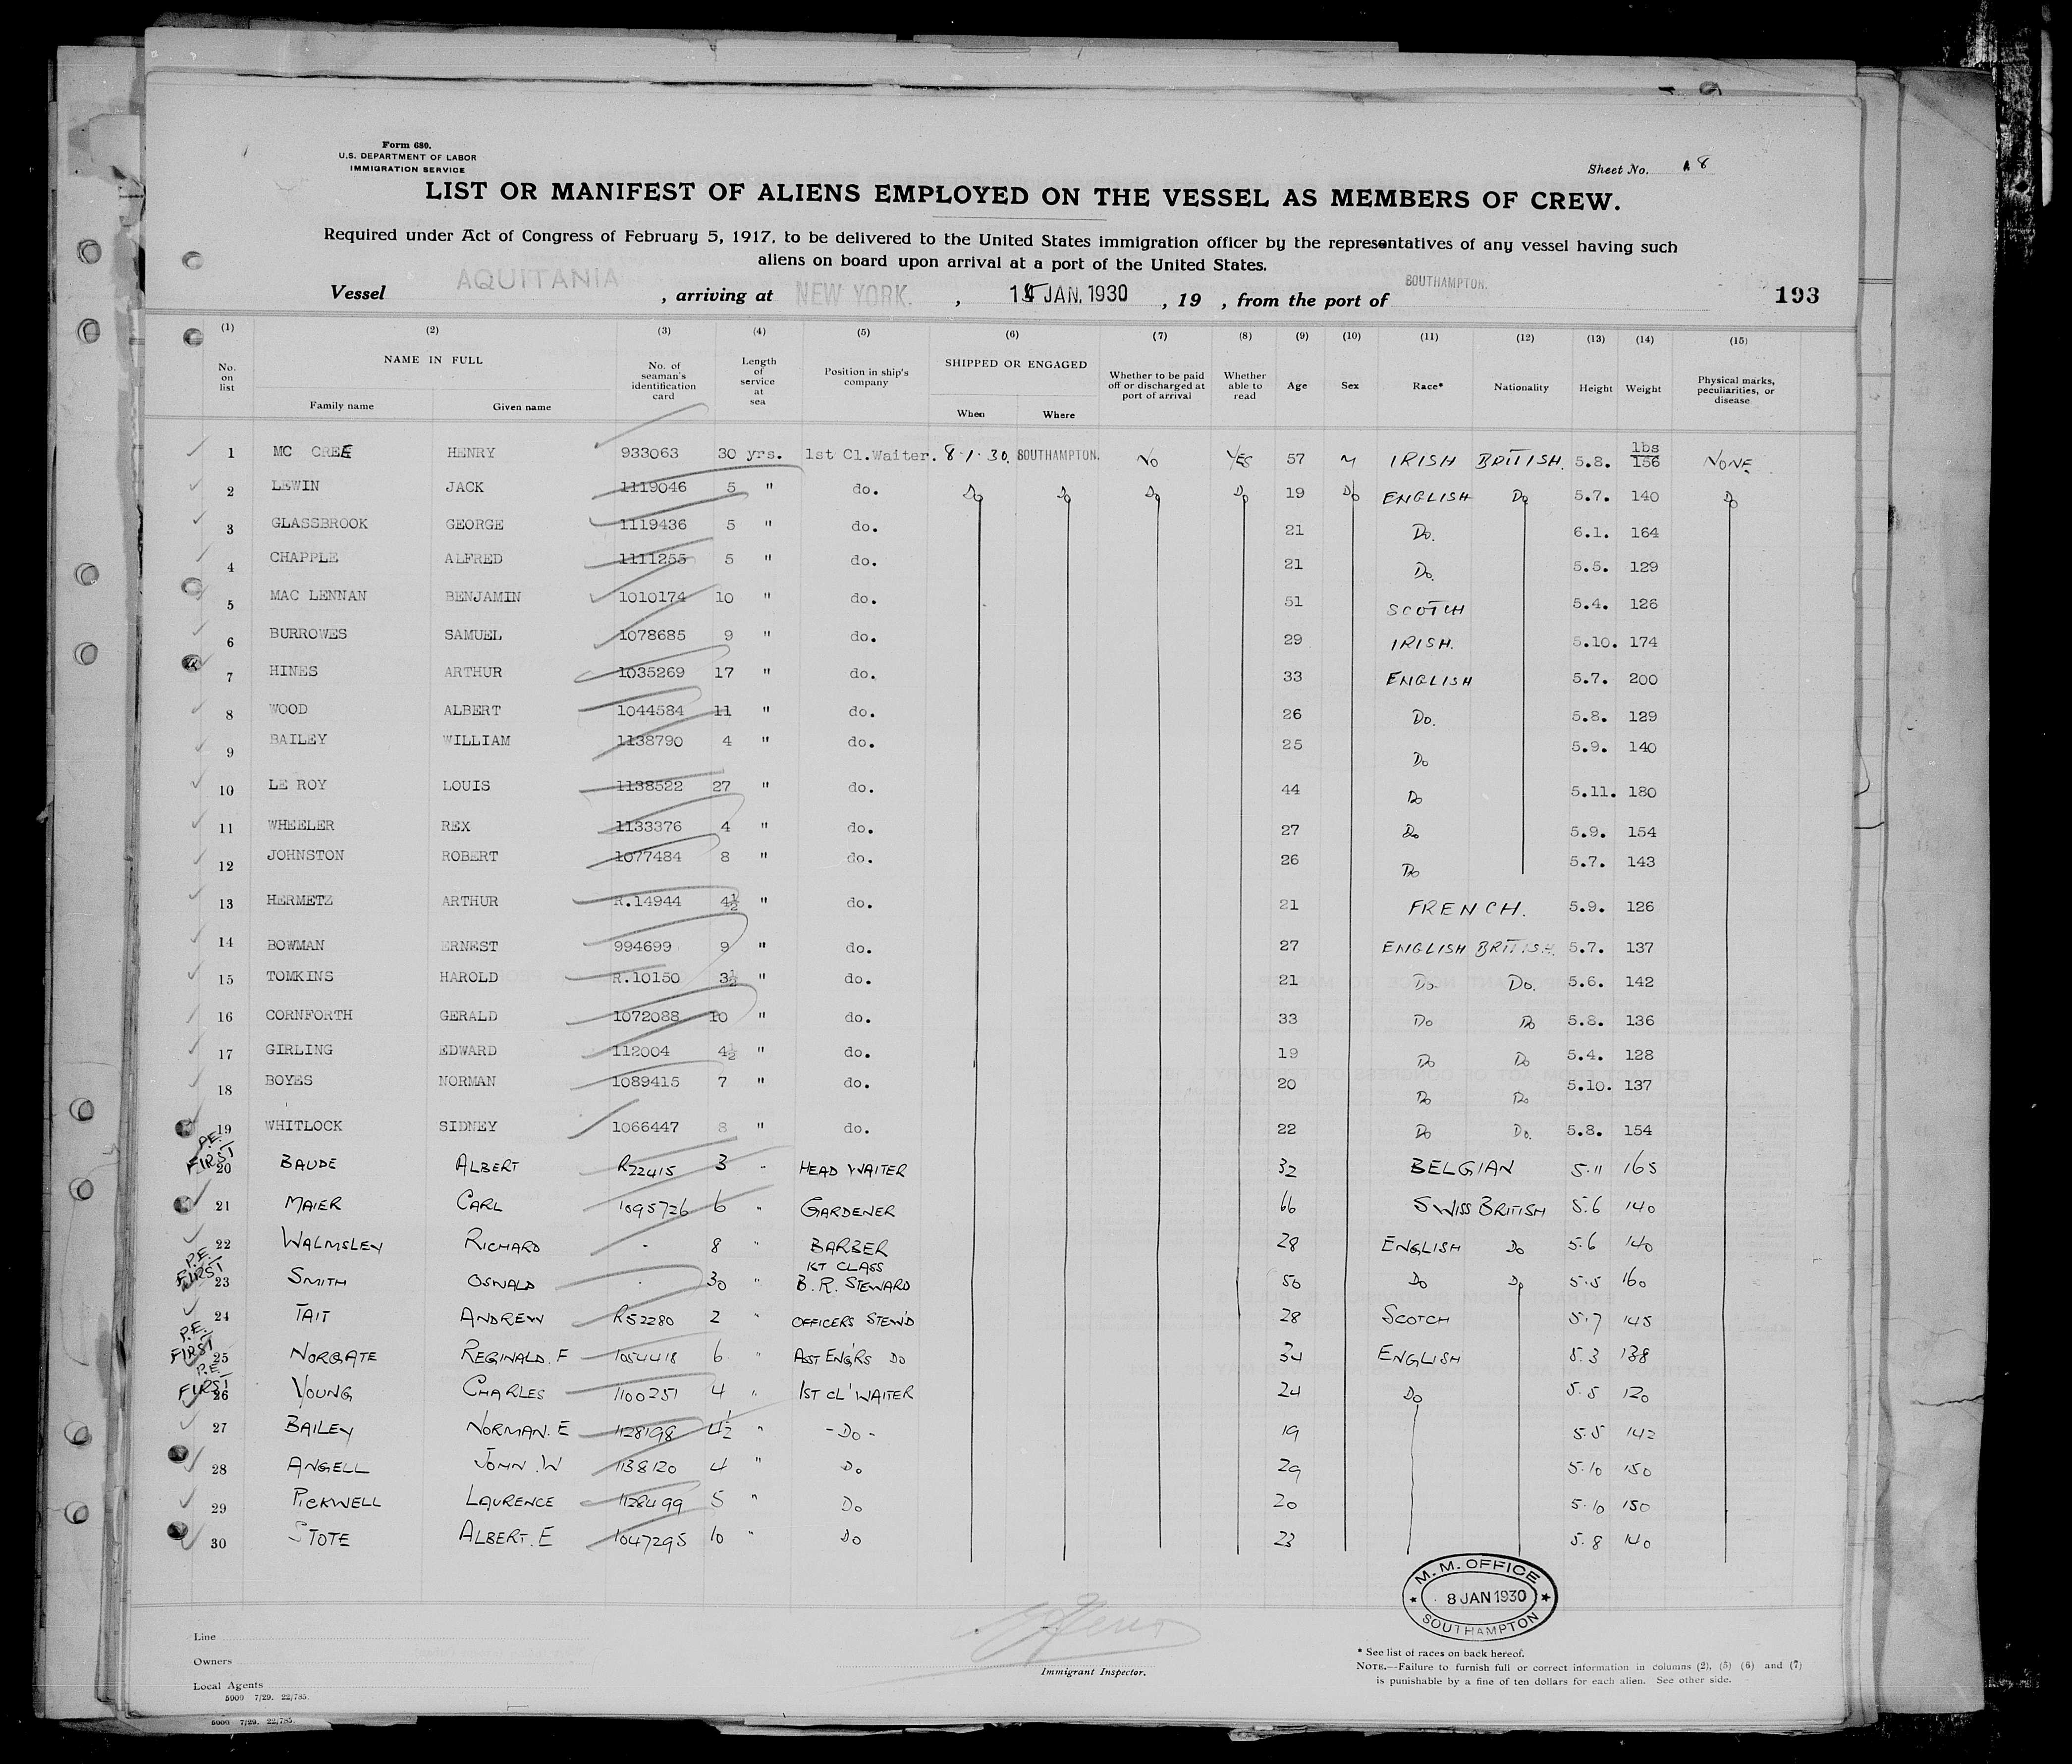 Form 680.
U.S. DEPARTMENT OF LABOR
IMMIGRATION SERVICE
Sheet No. 8
LIST OR MANIFEST OF ALIENS EMPLOYED ON THE VESSEL AS MEMBERS OF CREW.
Required under Act of Congress of February 5, 1917, to be delivered to the United States immigration officer by the representatives of any vessel having such
aliens on board upon arrival at a port of the United States.
Vessel AQUITANIA , arriving at NEW YORK. , JAN, 1930 , 19 , from the port of SOUTHAMPTON. 193
(1) (2) (3) (4) (5) (6) (7) (8) (9) (10) (11) (12) (13) (14) (15)
No. on list NAME IN FULL Family name Given name No. of seaman's identification card Length of service at sea Position in ship's company SHIPPED OR ENGAGED When Where Whether to be paid off or discharged at port of arrival Whether able to read Age Sex Race* Nationality Height Weight Physical marks, peculiarities, or disease
1 MC CREE HENRY 933063 30 yrs. 1st Cl.Waiter. 8.1.30. SOUTHAMPTON. NO YES 57 M IRISH BRITISH. 5.8. lbs 156 NONE
2 LEWIN JACK 1119046 5 " do. Do Do Do Do 19 Do ENGLISH Do 5.7. 140 Do
3 GLASSBROOK GEORGE 1119436 5 " do. 21 Do. 6.1. 164
4 CHAPPLE ALFRED 1111255 5 " do. 21 Do. 5.5. 129
5 MAC LENNAN BENJAMIN 1010174 10 " do. 51 SCOTCH 5.4. 126
6 BURROWES SAMUEL 1078685 9 " do. 29 IRISH. 5.10. 174
7 HINES ARTHUR 1035269 17 " do. 33 ENGLISH 5.7. 200
8 WOOD ALBERT 1044584 11 " do. 26 Do. 5.8. 129
9 BAILEY WILLIAM 1138790 4 " do. 25 Do 5.9. 140
10 LE ROY LOUIS 1138522 27 " do. 44 Do 5.11. 180
11 WHEELER REX 1133376 4 " do. 27 Do 5.9. 154
12 JOHNSTON ROBERT 1077484 8 " do. 26 Do 5.7. 143
13 HERMETZ ARTHUR R.14944 4½ " do. 21 FRENCH. 5.9. 126
14 BOWMAN ERNEST 994699 9 " do. 27 ENGLISH BRITISH. 5.7. 137
15 TOMKINS HAROLD R.10150 3½ " do. 21 Do Do. 5.6. 142
16 CORNFORTH GERALD 1072088 10 " do. 33 Do Do 5.8. 136
17 GIRLING EDWARD 112004 4½ " do. 19 Do Do 5.4. 128
18 BOYES NORMAN 1089415 7 " do. 20 Do Do 5.10. 137
19 WHITLOCK SIDNEY 1066447 8 " do. 22 Do Do. 5.8. 154
P.E. FIRST 20 BAUDE ALBERT R22415 3 " HEAD WAITER 32 BELGIAN 5.11 165
21 MAIER CARL 1095726 6 " GARDENER 66 SWISS BRITISH 5.6 140
22 WALMSLEY RICHARD - 8 " BARBER 28 ENGLISH Do 5.6 140
P.E. FIRST 23 SMITH OSWALD - 30 " 1ST CLASS B.R. STEWARD 50 Do Do 5.5 160
24 TAIT ANDREW R52280 2 " OFFICERS STEW'D 28 SCOTCH 5.7 145
P.E. FIRST 25 NORGATE REGINALD. F 1054418 6 " ASST ENG'RS DO 34 ENGLISH 5.3 138
P.E. FIRST 26 YOUNG CHARLES 1100251 4 " 1ST CL' WAITER 24 Do 5.5 120
27 BAILEY NORMAN. E 1128198 4½ " - Do - 19 5.5 142
28 ANGELL JOHN .W 1138120 4 " Do 29 5.10 150
29 PICKWELL LAURENCE 1128499 5 " Do 20 5.10 150
30 STOTE ALBERT. E 1047295 10 " Do 23 5.8 140
M. M. OFFICE
8 JAN 1930
SOUTHAMPTON
Line
Owners
Local Agents
5900 7/29. 22/785.
Immigrant Inspector.
* See list of races on back hereof.
NOTE.—Failure to furnish full or correct information in columns (2), (5) (6) and (7)
is punishable by a fine of ten dollars for each alien. See other side.
5900 7/29. 22/785.